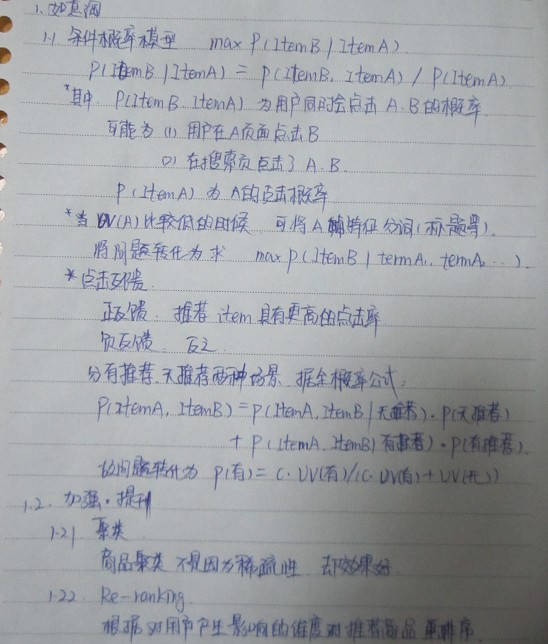 1. 如意淘
1.1 条件概率模型 max P(ItemB|ItemA)
P(ItemB|ItemA) = P(ItemB, ItemA) / P(ItemA)
*其中 P(ItemB. ItemA) 为用户同时会点击 A.B的概率
可能为 (1) 用户在A页面点击B
(2) 在搜索页点击了 A. B.
P(ItemA) 为 A的点击概率
*当 UV(A) 比较低的时候 可将A 特征分词(标题等).
将问题转化为求 max P(ItemB | termA1, termA2 ...).
*点击反馈
正反馈. 推荐 item 具有更高的点击率
负反馈. 反之.
分有推荐、无推荐两种场景. 据全概率公式:
P(ItemA, ItemB) = P(ItemA, ItemB | 无推荐) · P(无推荐)
+ P(ItemA, ItemB | 有推荐) · P(有推荐).
问题转化为 P(有) = C·UV(有)/(C·UV(有)+UV(无))
1.2. 加强·提升
1.21 聚类
商品聚类 不是因为稀疏性 却效果好
1.22. Re-ranking
根据对用户产生影响的维度对推荐商品重排序